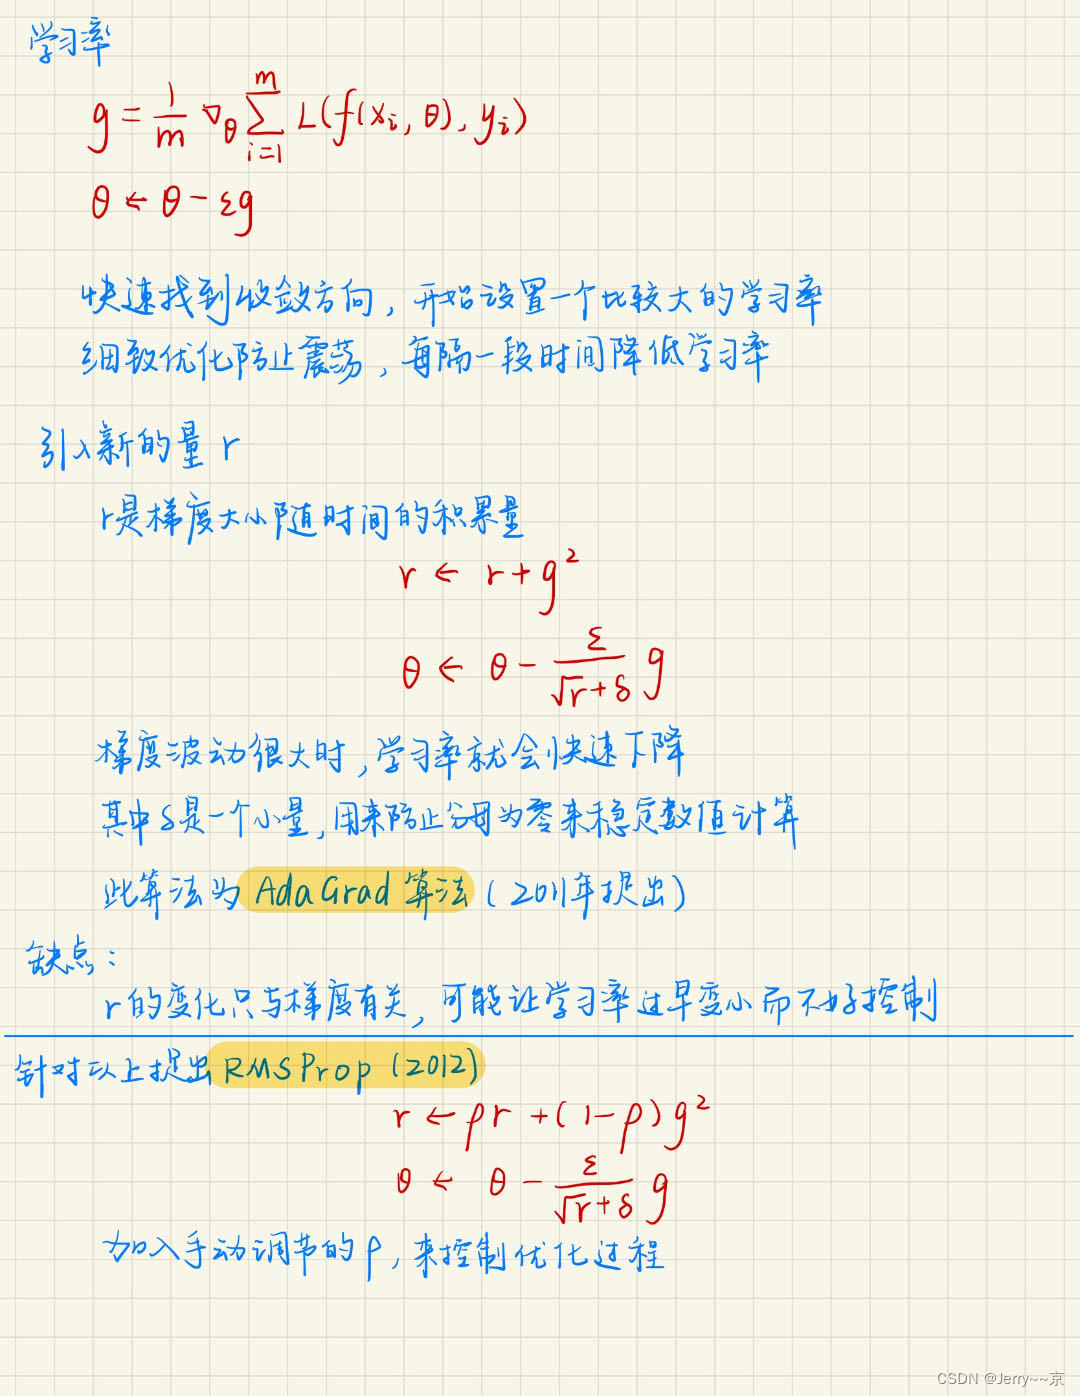 学习率
g = 1/m ∇_θ ∑_{i=1}^{m} L(f(x_i, θ), y_i)
θ ← θ - εg
快速找到收敛方向，开始设置一个比较大的学习率
细致优化防止震荡，每隔一段时间降低学习率
引入新的量 r
r是梯度大小随时间的积累量
r ← r + g²
θ ← θ - ε/(√r + δ) g
梯度波动很大时，学习率就会快速下降
其中δ是一个小量，用来防止分母为零来稳定数值计算
此算法为 AdaGrad 算法（2011年提出）
缺点：
r的变化只与梯度有关，可能让学习率过早变小而不好控制
针对以上提出 RMSProp（2012）
r ← ρr + (1-ρ)g²
θ ← θ - ε/(√r + δ) g
加入手动调节的ρ，来控制优化过程
CSDN @Jerry~~京